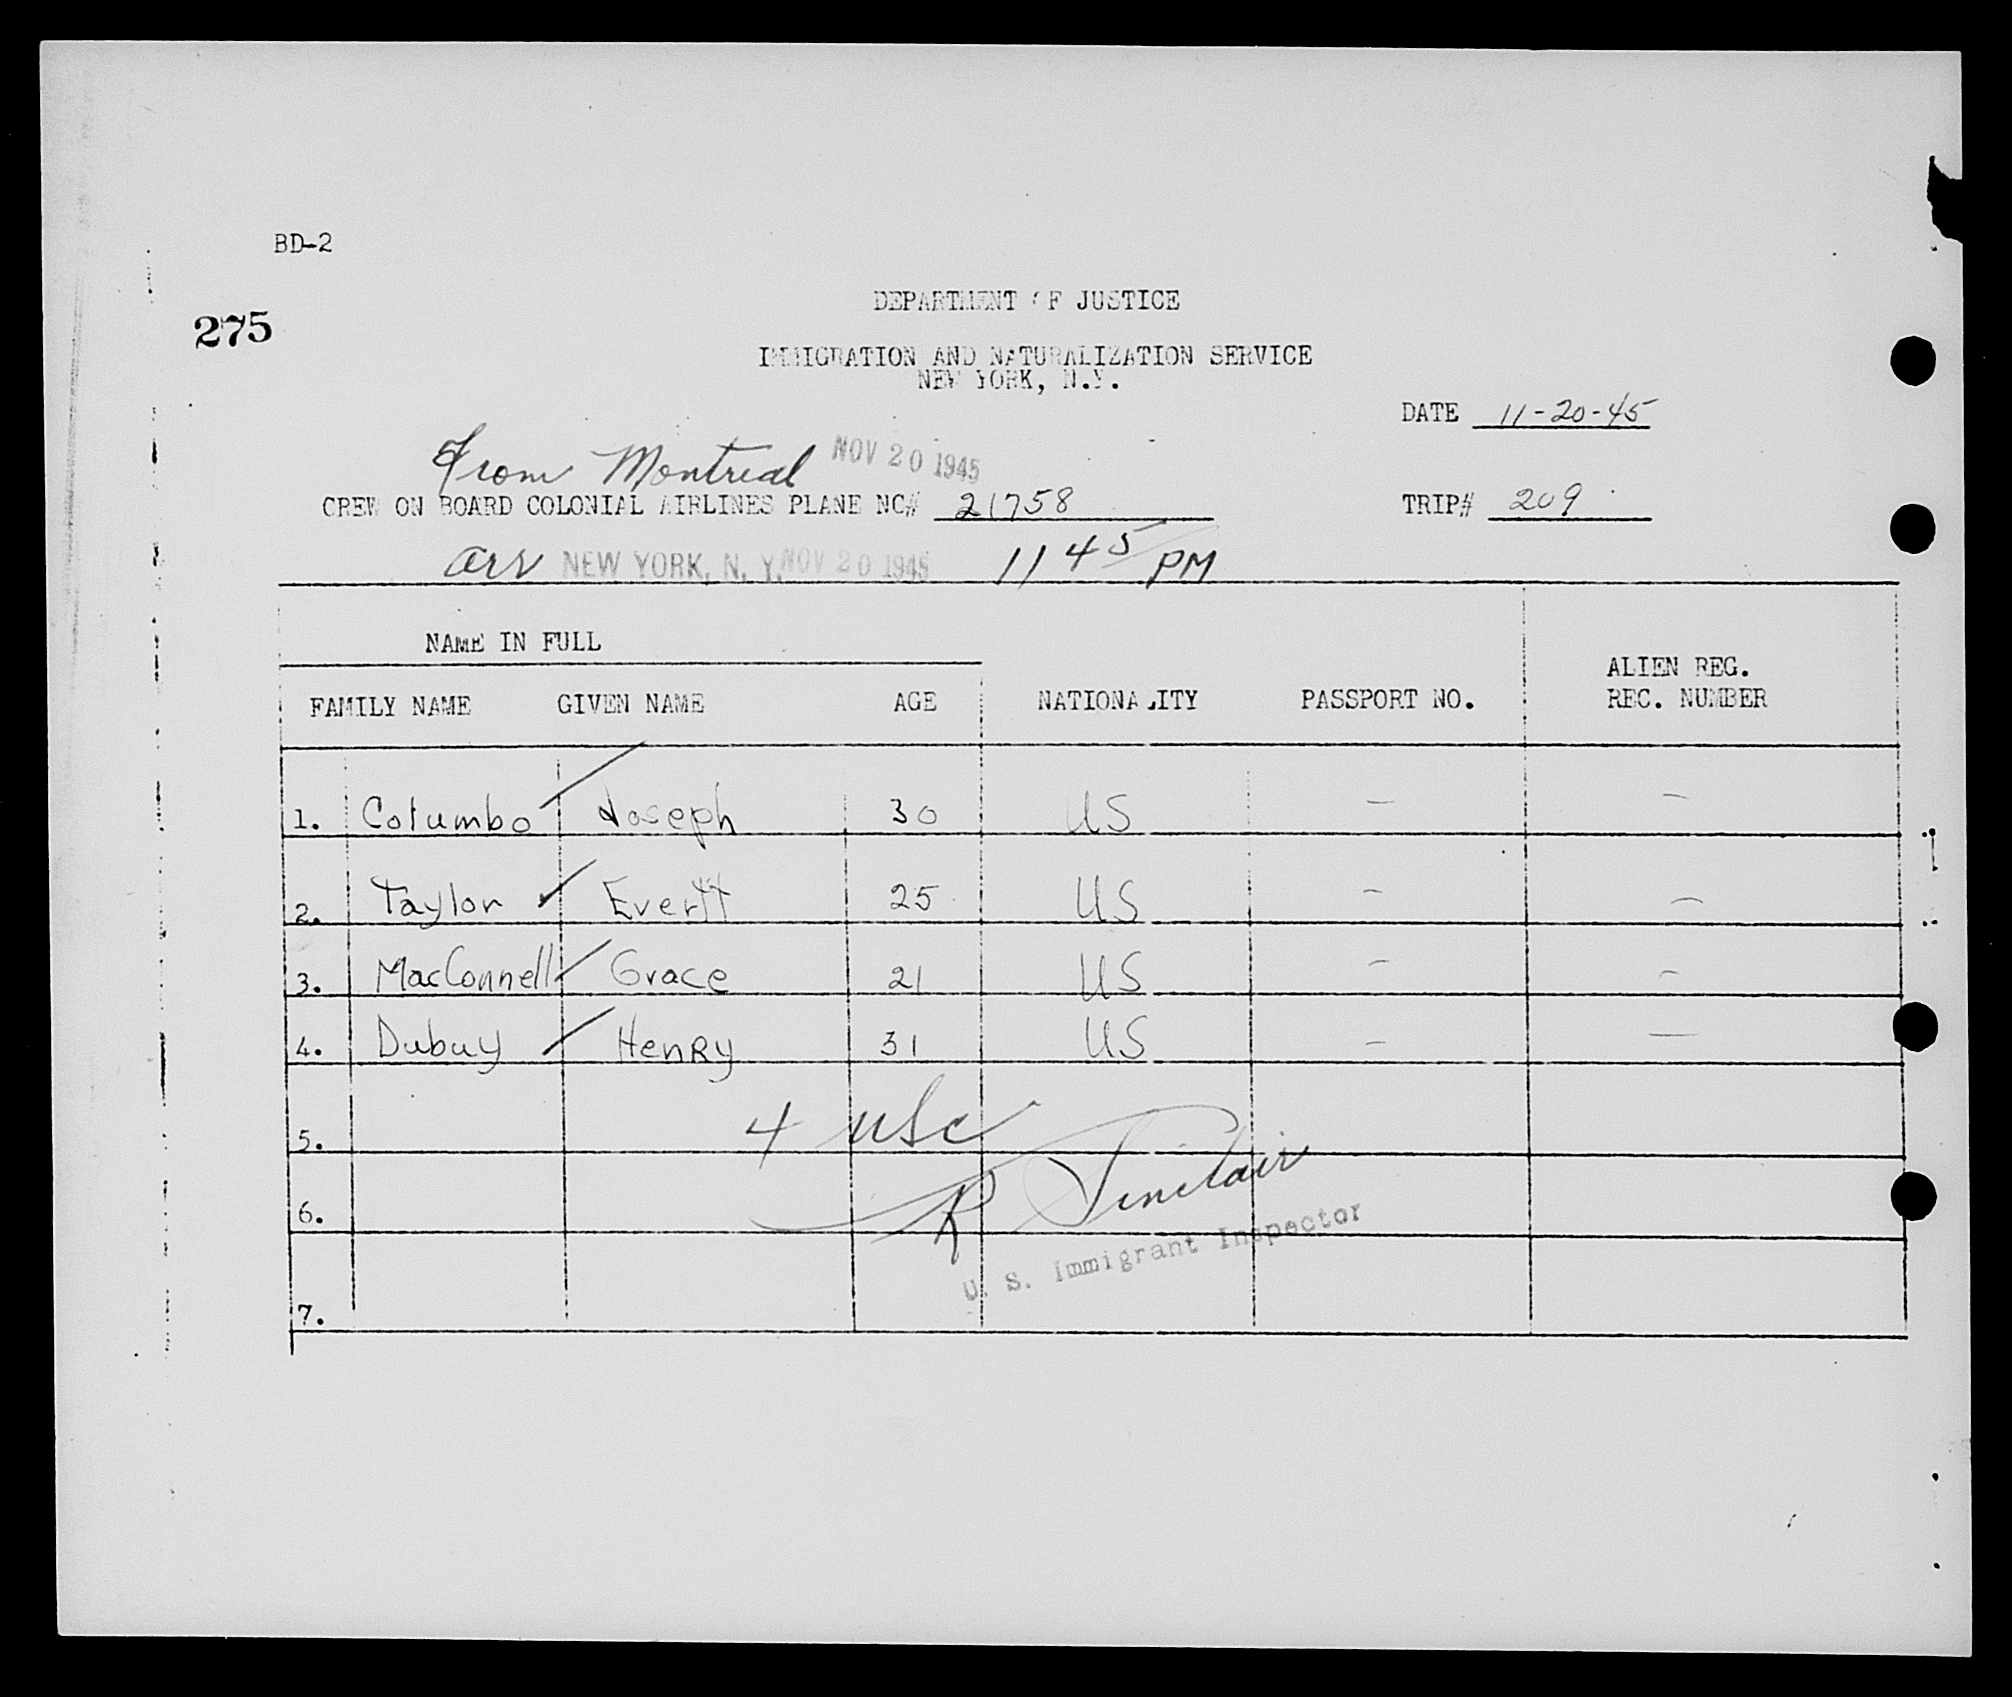 BD-2
275
DEPARTMENT OF JUSTICE
IMMIGRATION AND NATURALIZATION SERVICE
NEW YORK, N.Y.
DATE 11-20-45
From Montreal NOV 20 1945
CREW ON BOARD COLONIAL AIRLINES PLANE NC# 21758 TRIP# 209
arr NEW YORK, N. Y. NOV 20 1945 11 45 PM
NAME IN FULL
FAMILY NAME GIVEN NAME AGE NATIONALITY PASSPORT NO. ALIEN REG. REC. NUMBER
1. Columbo Joseph 30 US — —
2. Taylor Evertt 25 US — —
3. MacConnell Grace 21 US — —
4. Dubuy Henry 31 US — —
5. 4 USC
6. R Sinclair
U. S. Immigrant Inspector
7.